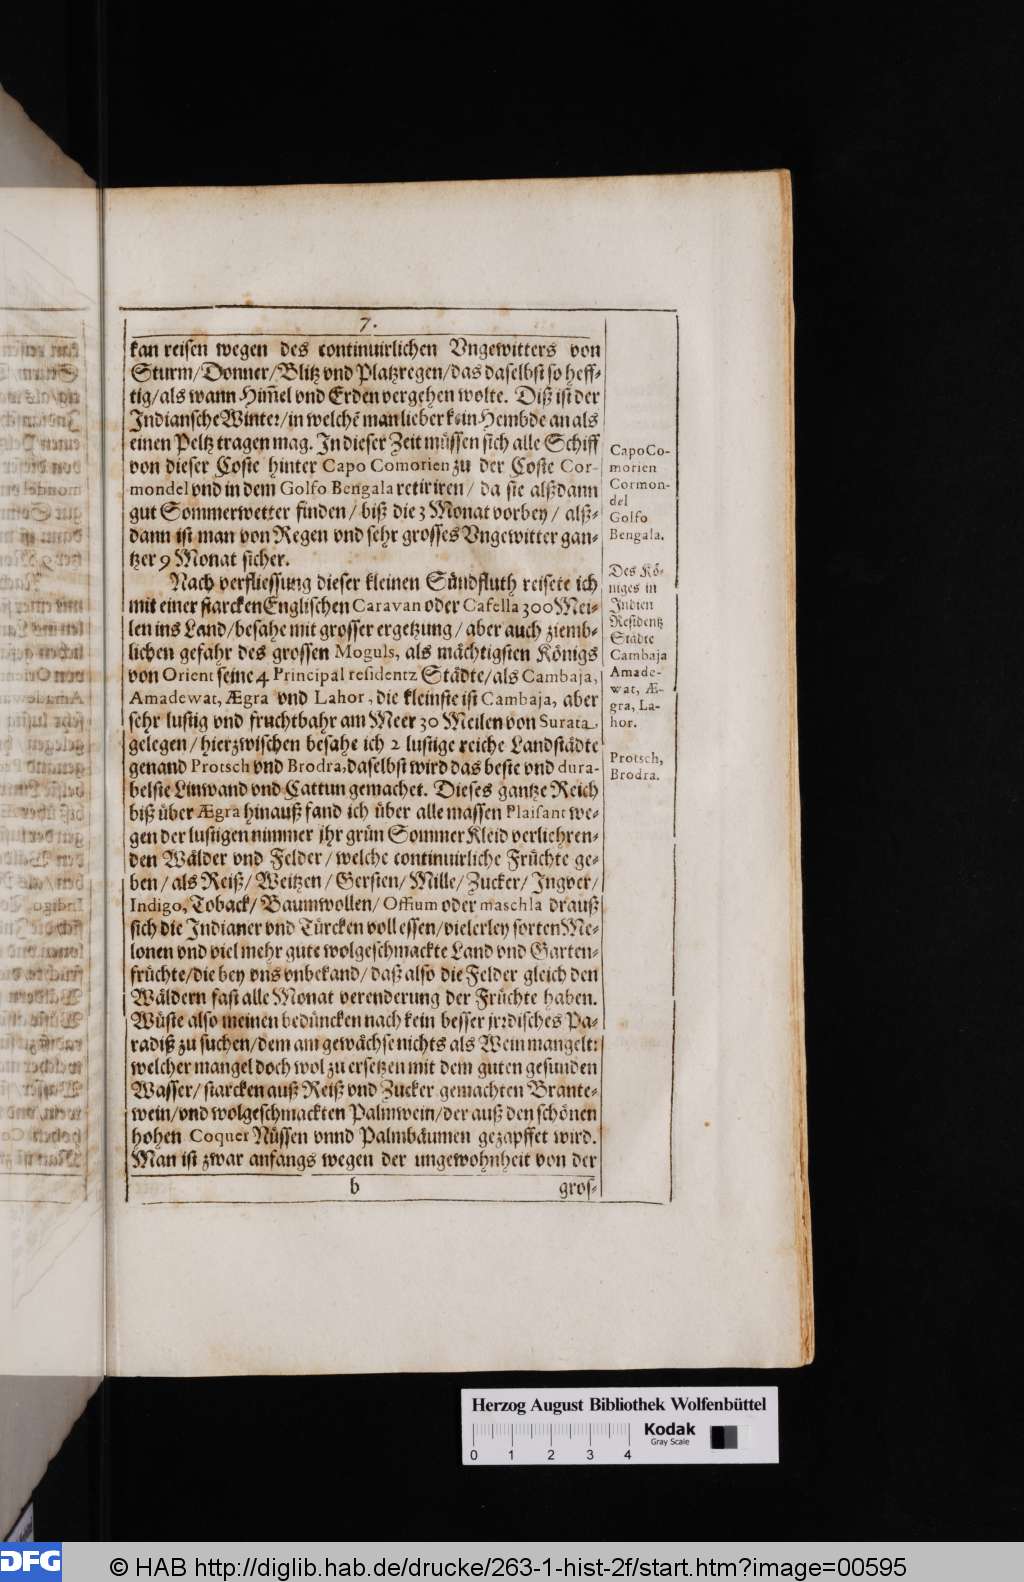 7.
kan reisen wegen des continuirlichen Vngewitters von
Sturm/Donner/Blitz vnd Platzregen/das daselbst so heff-
tig/als wann Him̃el vnd Erden vergehen wolte. Diß ist der
Indiansche Winter/in welchẽ man lieber kein Hembde an als
einen Peltz tragen mag. In dieser Zeit müssen sich alle Schiff
von dieser Coste hinter Capo Comorien zu der Coste Cor-
mondel vnd in dem Golfo Bengala retiriren/ da sie alßdann
gut Sommerwetter finden/ biß die 3 Monat vorbey/ alß-
dann ist man von Regen vnd sehr grosses Vngewitter gan-
tzer 9 Monat sicher.
Nach verfliessung dieser kleinen Sündfluth reisete ich
mit einer starcken Englischen Caravan oder Cafella 300 Mei-
len ins Land/besahe mit grosser ergetzung/ aber auch ziemb-
lichen gefahr des grossen Moguls, als mächtigsten Königs
von Orient seine 4 Principal residentz Städte/als Cambaja,
Amadewat, Ægra vnd Lahor, die kleinste ist Cambaja, aber
sehr lustig vnd fruchtbahr am Meer 30 Meilen von Surata
gelegen/ hierzwischen besahe ich 2 lustige reiche Landstädte
genand Protsch vnd Brodra, daselbst wird das beste vnd dura-
belste Linwand vnd Cattun gemachet. Dieses gantze Reich
biß über Ægra hinauß fand ich über alle massen Plaisant we-
gen der lustigen nimmer jhr grün Sommer Kleid verliehren-
den Wälder vnd Felder/ welche continuirliche Früchte ge-
ben/ als Reiß/ Weitzen/ Gersten/ Mille/ Zucker/ Ingver/
Indigo, Toback/ Baumwollen/ Offium oder maschla drauß
sich die Indianer vnd Türcken voll essen/vielerley sorten Me-
lonen vnd viel mehr gute wolgeschmackte Land vnd Garten-
früchte/die bey vns vnbekand/ daß also die Felder gleich den
Wäldern fast alle Monat verenderung der Früchte haben.
Wüste also meinen bedüncken nach kein besser jrrdisches Pa-
radiß zu suchen/dem am gewächse nichts als Wein mangelt:
welcher mangel doch wol zu ersetzen mit dem guten gesunden
Wasser/ starcken auß Reiß vnd Zucker gemachten Brante-
wein/vnd wolgeschmackten Palmwein/der auß den schönen
hohen Coquer Nüssen vnnd Palmbäumen gezapffet wird.
Man ist zwar anfangs wegen der ungewohnheit von der
b
gros-
Capo Co-
morien
Cormon-
del
Golfo
Bengala.
Des Kö-
niges in
Indien
Residentz
Städte
Cambaja
Amade-
wat, Æ-
gra, La-
hor.
Protsch,
Brodra.
Herzog August Bibliothek Wolfenbüttel
Kodak
Gray Scale
0 1 2 3 4
DFG
© HAB http://diglib.hab.de/drucke/263-1-hist-2f/start.htm?image=00595